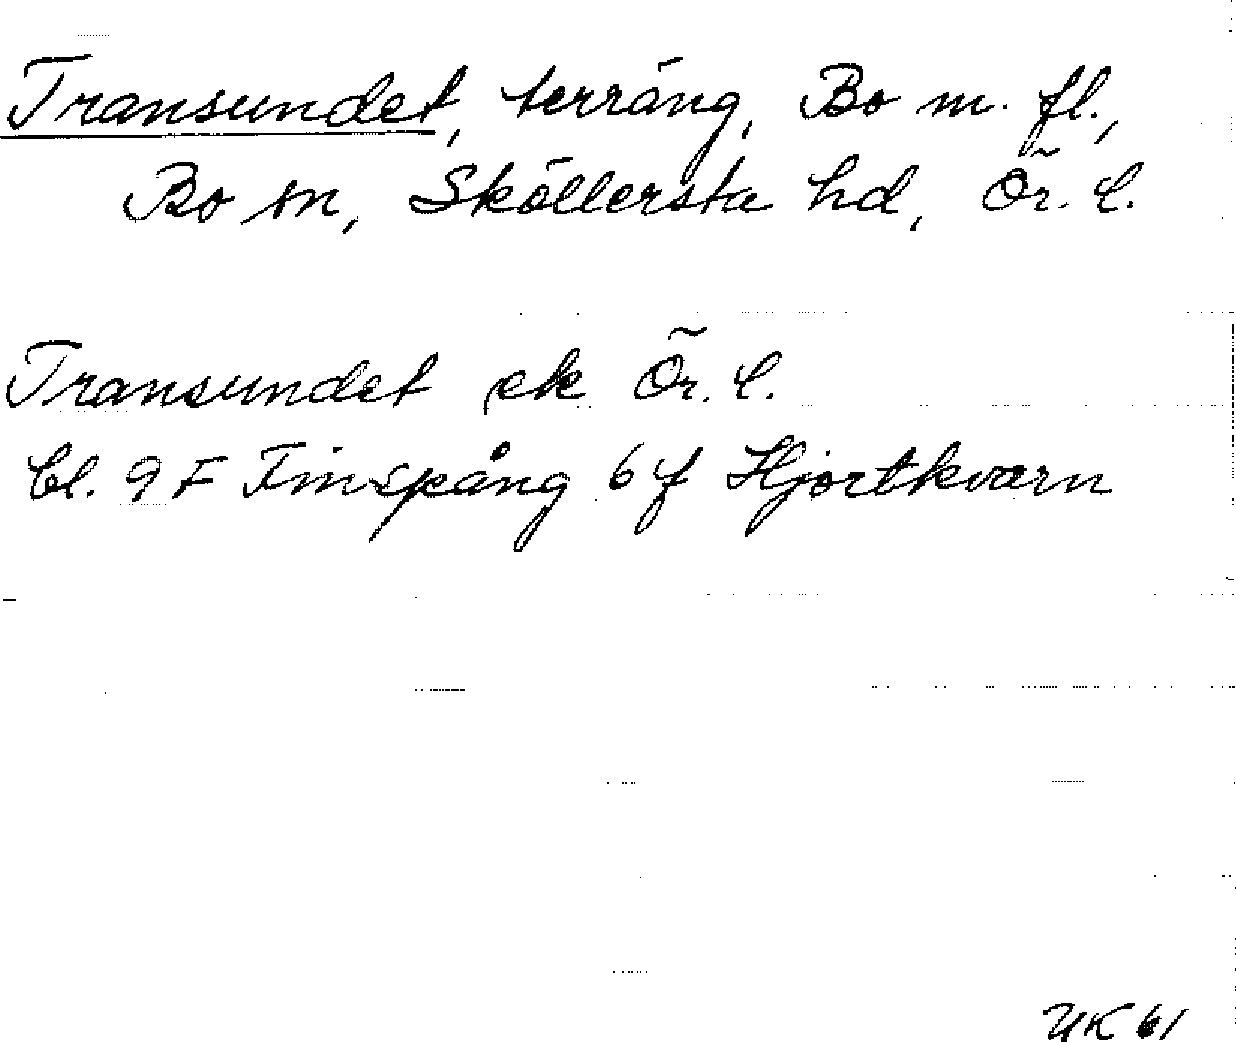 Transundet, terräng, Bo m. fl.,
Bo sn, Sköllersta hd, Ör. l.
Transundet ek Ör. l.
bl. 9 F Finspång 6 f Hjortkvarn
UK 61